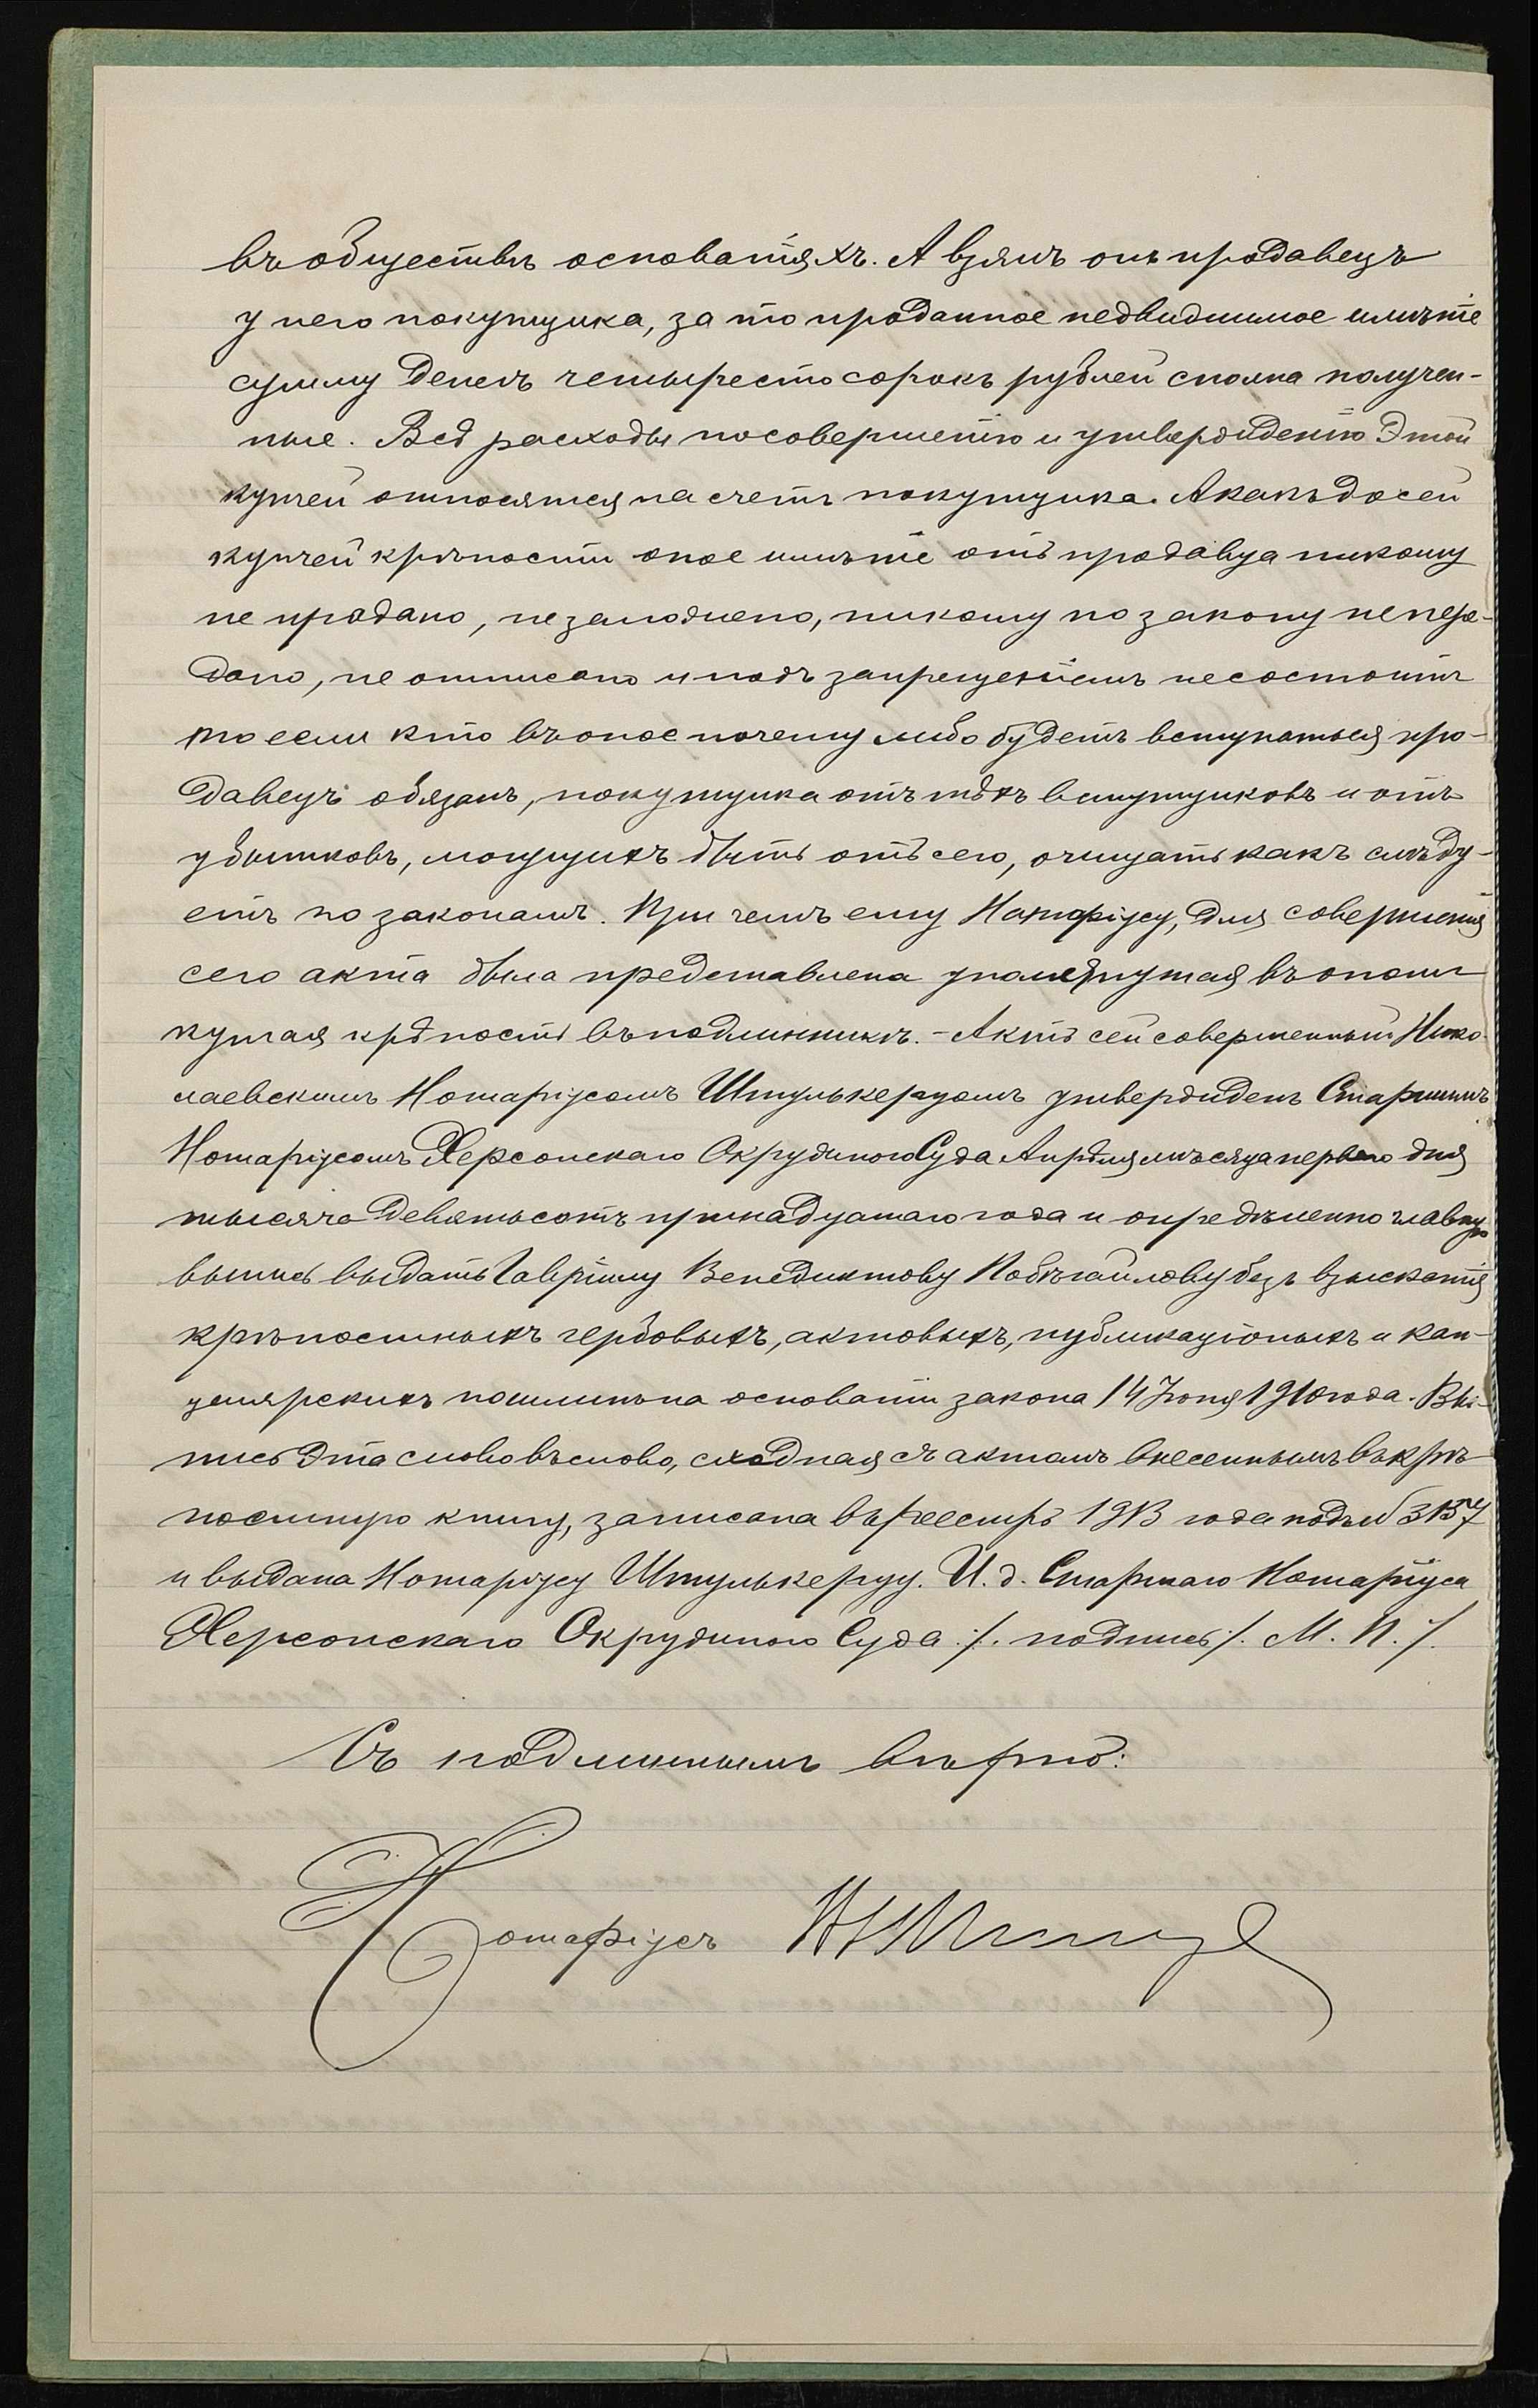 въ обществѣ основаніяхъ. А взялъ онъ продавецъ
у него покупщика, за то проданное недвижимое имѣніе
сумму денегъ четыреста сорокъ рублей сполна получен-
ные. Всѣ расходы по совершенію и утвержденію этой
купчей относятся на счетъ покупщика. А какъ до сей
купчей крѣпости оное имѣніе отъ продавца никому
не продано, не заложено, никому по закону не пере-
дано, не отписано и подъ запрещеніемъ не состоитъ
то если кто въ оное почему либо будетъ вступаться, про-
давецъ обязанъ, покупщика отъ тѣхъ вступщиковъ и отъ
убытковъ, могущихъ быть отъ сего, очищать какъ слѣду-
етъ по законамъ. При чемъ ему Нотаріусу, для совершенія
сего акта была представлена упомянутая въ ономъ
купчая крѣпость въ подлинникѣ. - Актъ сей совершенный Нико-
лаевскимъ Нотаріусомъ Штулькерцомъ утвержденъ Старшимъ
Нотаріусомъ Херсонскаго Окружного Суда Апрѣля мѣсяца перваго дня
тысяча девятьсотъ тринадцатаго года и опредѣлено главную
выпись выдать Гавріилу Венедиктову Побѣгайлову безъ взысканія
крѣпостныхъ гербовыхъ, актовыхъ, публикаціоныхъ и кан-
целярскихъ пошлинъ на основаніи закона 14 Іюня 1910 года. Вы-
пись эта слово въ слово, сходная съ актомъ внесеннымъ въ крѣ-
постную книгу, записана въ реестръ 1913 года подъ № 3157
и выдана Нотаріусу Штулькерцу. И. д. Старшаго Нотаріуса
Херсонскаго Окружного Суда ./. подпись ./. М. П. ./.
Съ подлиннымъ вѣрно:
Нотаріусъ